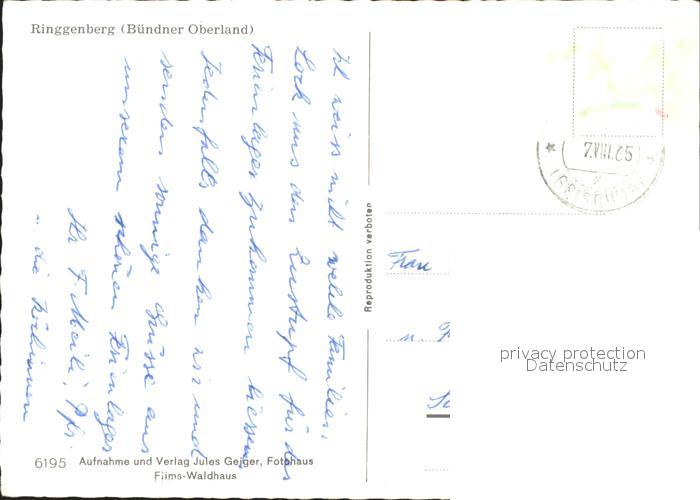 Ringgenberg (Bündner Oberland)
7.VIII.65
Ich weiss nicht welche Familien,
Loch uns den Zustupf für das
Ferienlager zukommen liessen
Jedenfalls danken wir und
senden sonnige Grüsse aus
unserem schönen Ferienlager
Ihr F. Meili, Pfr.
die Köchinnen
Reproduktion verboten
Frau
u.
privacy protection
Datenschutz
6195 Aufnahme und Verlag Jules Geiger, Fotohaus
Flims-Waldhaus